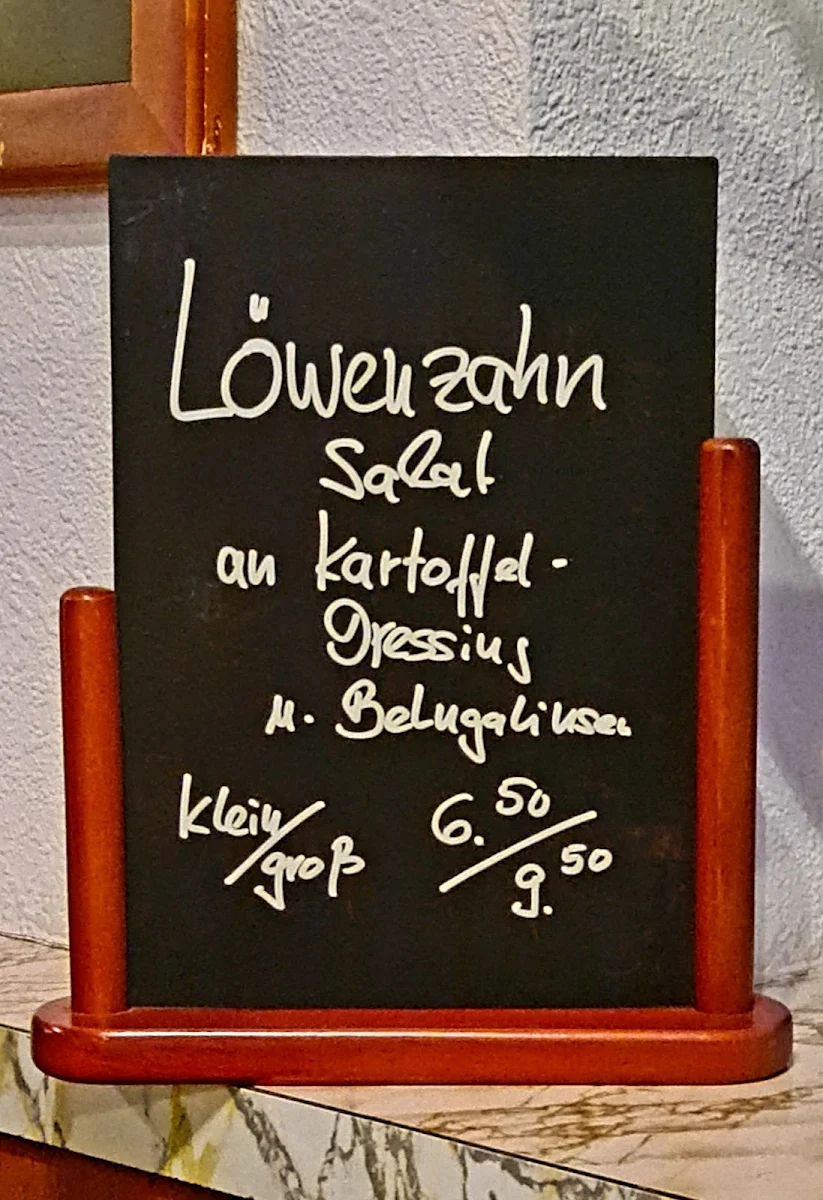 Löwenzahn
Salat
an Kartoffel-
Dressing
m. Belugalinsen
klein/groß 6.50/9.50